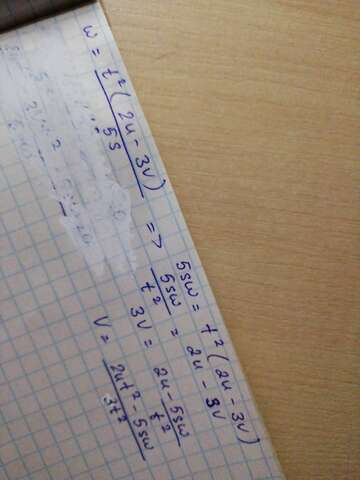 w = t²(2u - 3v)/5s => 5sw = t²(2u - 3v)
5sw/t² = 2u - 3v
3v = 2u - 5sw/t²
v = (2ut² - 5sw)/3t²